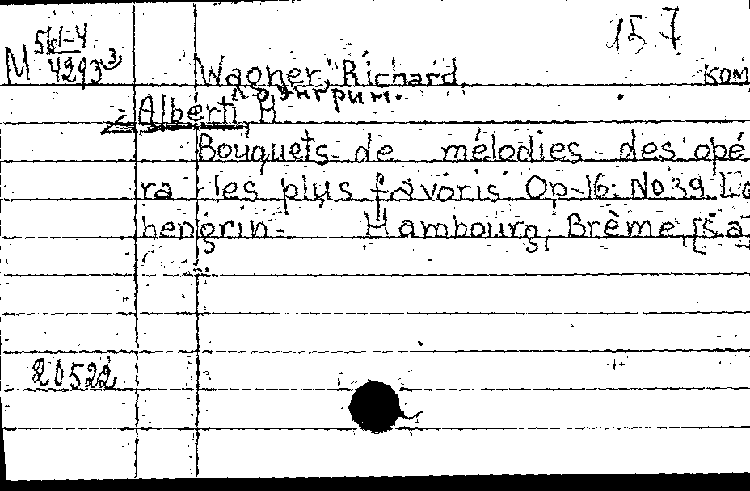 157
M 561-4
4293 3
Wagner, Richard, ком
"Лоэнгрин."
Alberti, H
Bouquets de mélodies des opé
ra les plus favoris. Op. 16. No 39. Lo
hengrin. Hambourg, Brème, [s.a.
20522